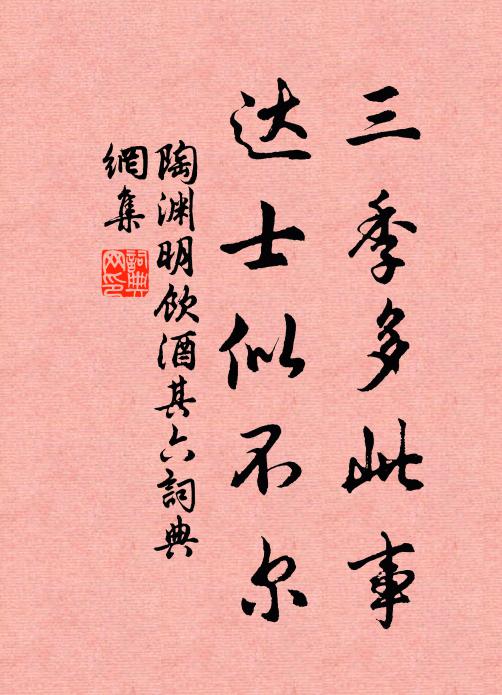 三季多此事
达士似不尔
陶渊明饮酒其六詞典
網集
詞典
网印